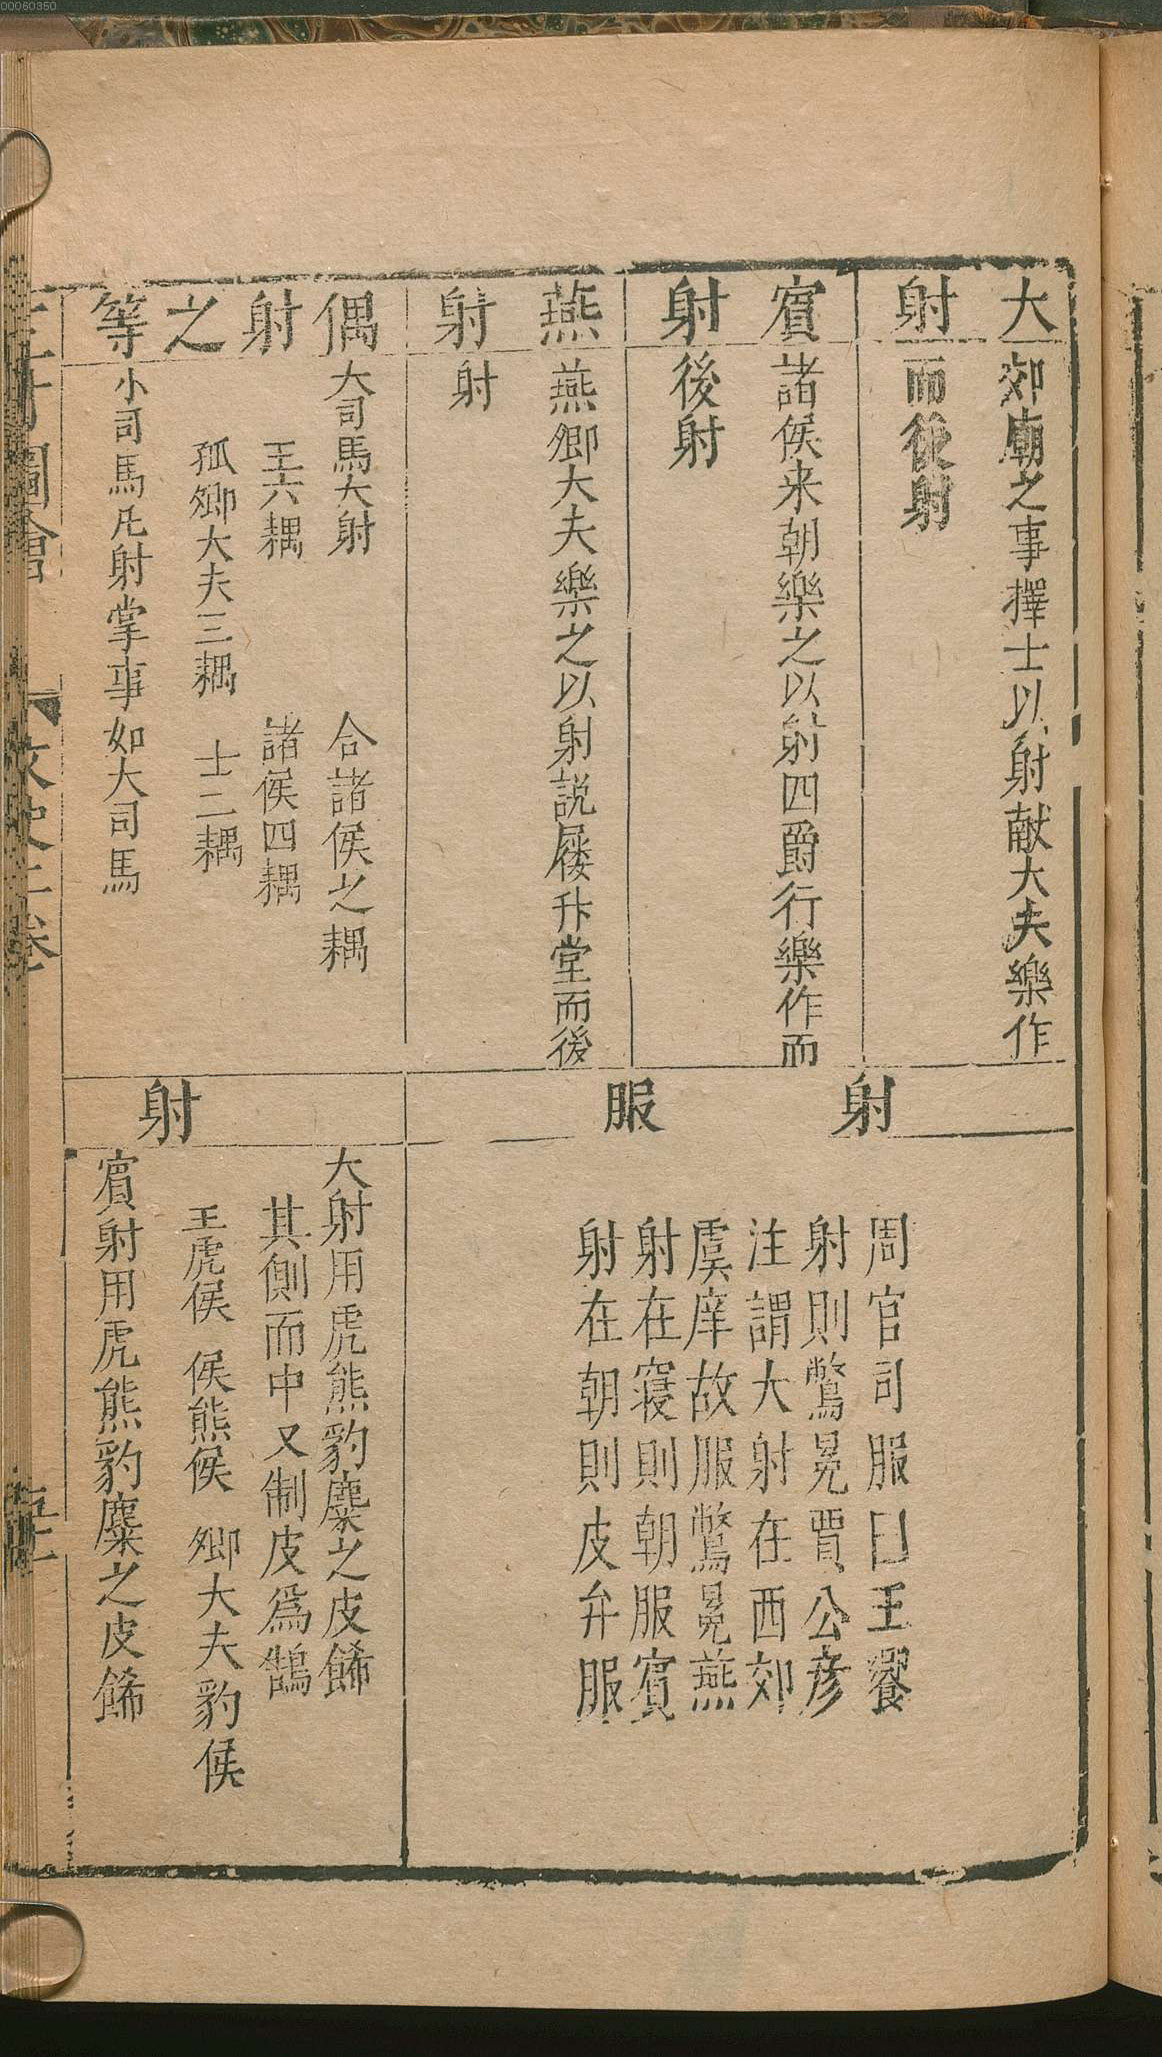 00060350
大射
郊廟之事擇士以射献大夫樂作
而後射
賔射
諸侯来朝樂之以射四爵行樂作而
後射
燕射
燕卿大夫樂之以射説屨升堂而後
射
偶射之等
大司馬大射 合諸侯之耦
王六耦 諸侯四耦
孤卿大夫三耦 士二耦
小司馬凡射掌事如大司馬
射服
周官司服曰王饗
射則鷩冕賈公彦
注謂大射在西郊
虞庠故服鷩冕燕
射在寝則朝服賔
射在朝則皮弁服
射
大射用虎熊豹麋之皮餙
其側而中又制皮爲鵠
王虎侯 侯熊侯 卿大夫豹侯
賔射用虎熊豹麋之皮餙
三才圖會
文史二卷